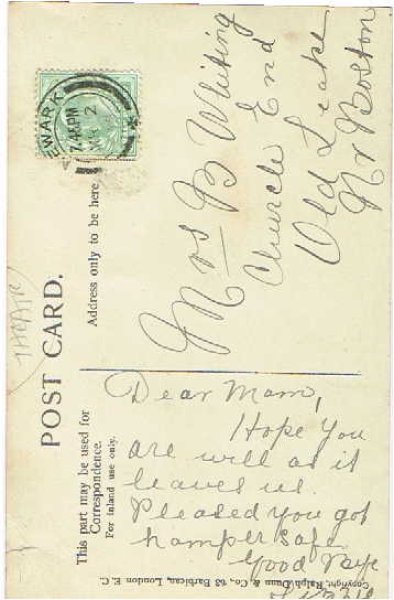 POST CARD.
Address only to be here.
This part may be used for
Correspondence.
For inland use only.
NEWARK
7.45PM
2
Mrs B Whiting
Church End
Old Leake
Nr Boston
Dear Mam,
Hope You
are will as it
leaves us.
Pleased you got
hamper safe
Good Bye
Copyright, Ralph Dunn & Co., 63 Barbican, London E.C.